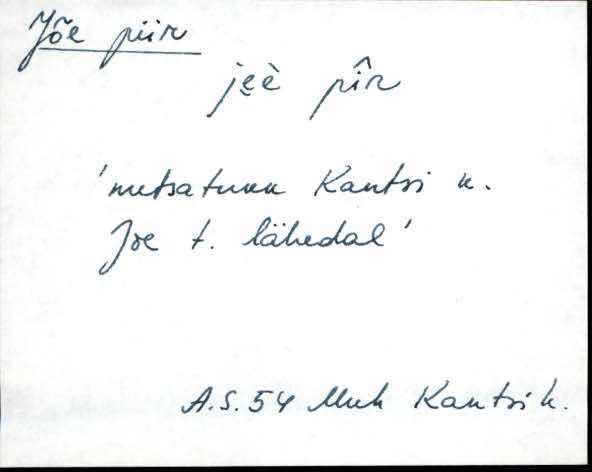 Jõe piir
je̮è pîr
'metsatukk Kantsi k.
Jõe t. lähedal'
A.S. 54 Muh Kantsi k.